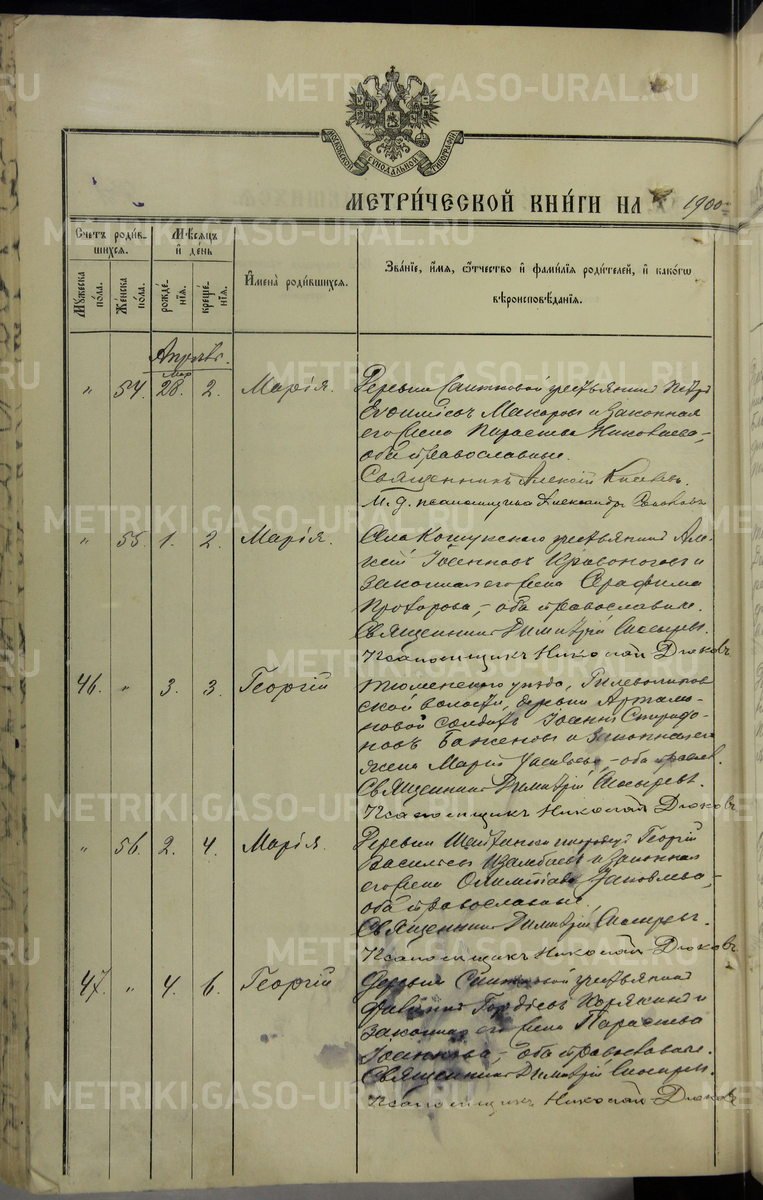 METRIKI.GASO-URAL.RU
МОСКОВСКОЙ СѴНОДАЛЬНОЙ ТИПОГРАФІИ
МЕТРИ́ЧЕСКОЙ КНИ́ГИ НА 1900
Счетъ роди́в-
шихся.
Мѣсяцъ
и̑ де́нь
Мꙋжеска по́ла.
Же́нска по́ла.
рожде́нїя.
креще́нїя.
И҆мена̀ роди́вшихся.
Зва́нїе, и҆́мя, ѻ҆́тчество и҆ фами́лїя роди́телей, и҆ како́гѡ
вѣроисповѣ́данїя.
Апрѣль.
Мар
" 54. 28. 2. Марія. Деревни крестьянинъ Петръ
Евѳиміевъ Макаровъ и законная
его жена Параскева Николаева,
оба православные.
Священникъ Алексій
И. д. псаломщика Александръ
" 55. 1. 2. Марія. Села Кошукскаго крестьянинъ Але-
ксій Іоанновъ Кривоноговъ и
законная его жена Серафима
Прохорова, – оба православные.
Священникъ Димитрій
Псаломщикъ Николай Дюковъ
46. " 3. 3. Георгій Тюменскаго уѣзда,
ской волости, деревни Артамо-
новой солдатъ Іоаннъ Спиридо-
новъ Баженовъ и законная его
жена Марія – оба правосл.
Священникъ Димитрій
Псаломщикъ Николай Дюковъ
" 56. 2. 4. Марія. Деревни Георгій
Васильевъ и законная
его жена Олимпіада Яковлева,
оба православные.
Священникъ Димитрій
Псаломщикъ Николай Дюковъ
47. " 4. 6. Георгій Деревни крестьянинъ
Гордѣевъ и
законная его жена Параскева
Іоаннова, – оба православные.
Священникъ Димитрій
Псаломщикъ Николай Дюковъ